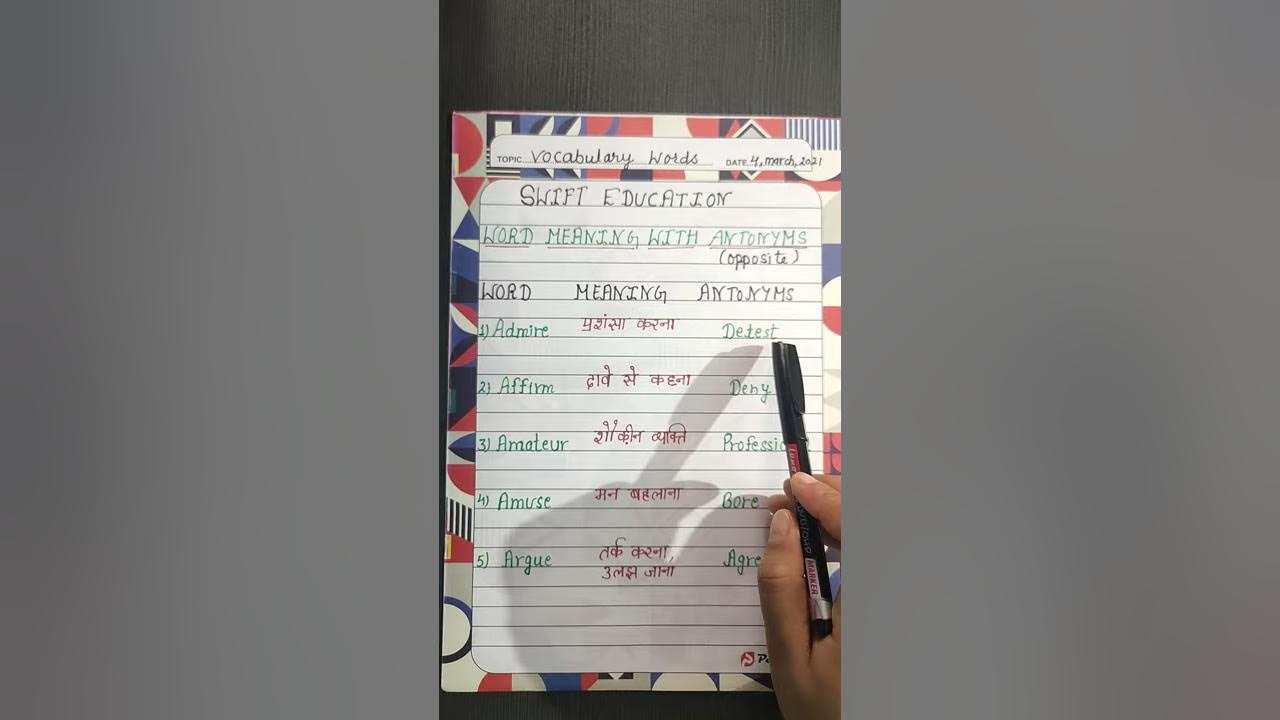 TOPIC Vocabulary Words DATE 4, March, 2021
SWIFT EDUCATION
WORD MEANING WITH ANTONYMS
(opposite)
WORD MEANING ANTONYMS
1) Admire प्रशंसा करना Detest
2) Affirm दावे से कहना Deny
3) Amateur शौकीन व्यक्ति
4) Amuse मन बहलाना Bore
5) Argue तर्क करना,
उलझ जाना
MARKER